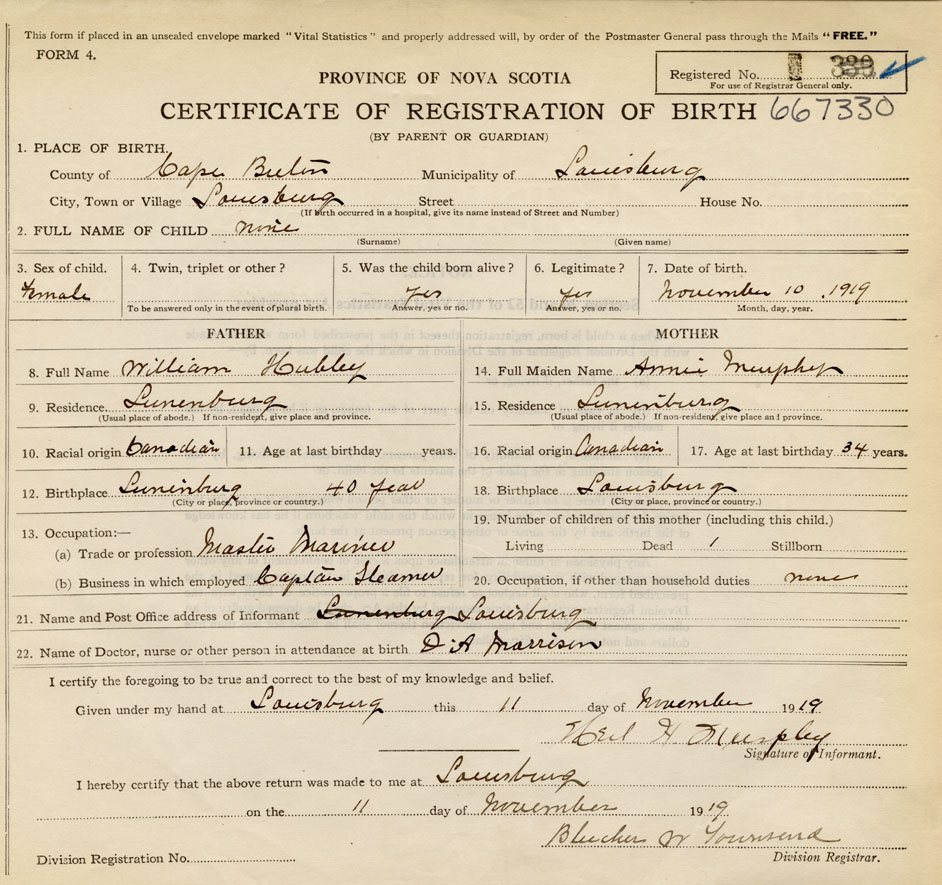 This form if placed in an unsealed envelope marked "Vital Statistics" and properly addressed will, by order of the Postmaster General pass through the Mails "FREE."
FORM 4.
PROVINCE OF NOVA SCOTIA
Registered No. 339
For use of Registrar General only.
CERTIFICATE OF REGISTRATION OF BIRTH 667330
(BY PARENT OR GUARDIAN)
1. PLACE OF BIRTH.
County of Cape Breton Municipality of Louisburg
City, Town or Village Louisburg Street House No.
(If birth occurred in a hospital, give its name instead of Street and Number)
2. FULL NAME OF CHILD none
(Surname) (Given name)
3. Sex of child. 4. Twin, triplet or other? 5. Was the child born alive? 6. Legitimate? 7. Date of birth.
Female yes yes November 10, 1919
To be answered only in the event of plural birth. Answer, yes or no. Answer, yes or no. Month, day, year.
FATHER MOTHER
8. Full Name William Hubley 14. Full Maiden Name Annie Murphey
9. Residence. Lunenburg 15. Residence Lunenburg
(Usual place of abode.) If non-resident, give place and province. (Usual place of abode.) If non-resident, give place and province.
10. Racial origin Canadian 11. Age at last birthday years. 16. Racial origin Canadian 17. Age at last birthday 34 years.
12. Birthplace Lunenburg 40 year 18. Birthplace Louisburg
(City or place, province or country.) (City or place, province or country.)
13. Occupation:— 19. Number of children of this mother (including this child.)
(a) Trade or profession Master Mariner Living Dead 1 Stillborn
(b) Business in which employed Captan Steamer 20. Occupation, if other than household duties none
21. Name and Post Office address of Informant Lunenburg Louisburg
22. Name of Doctor, nurse or other person in attendance at birth D A Morrison
I certify the foregoing to be true and correct to the best of my knowledge and belief.
Given under my hand at Louisburg this 11 day of November 1919
Neil H Murphy
Signature of Informant.
I hereby certify that the above return was made to me at Louisburg
on the 11 day of November 1919
W Townsend
Division Registration No. Division Registrar.